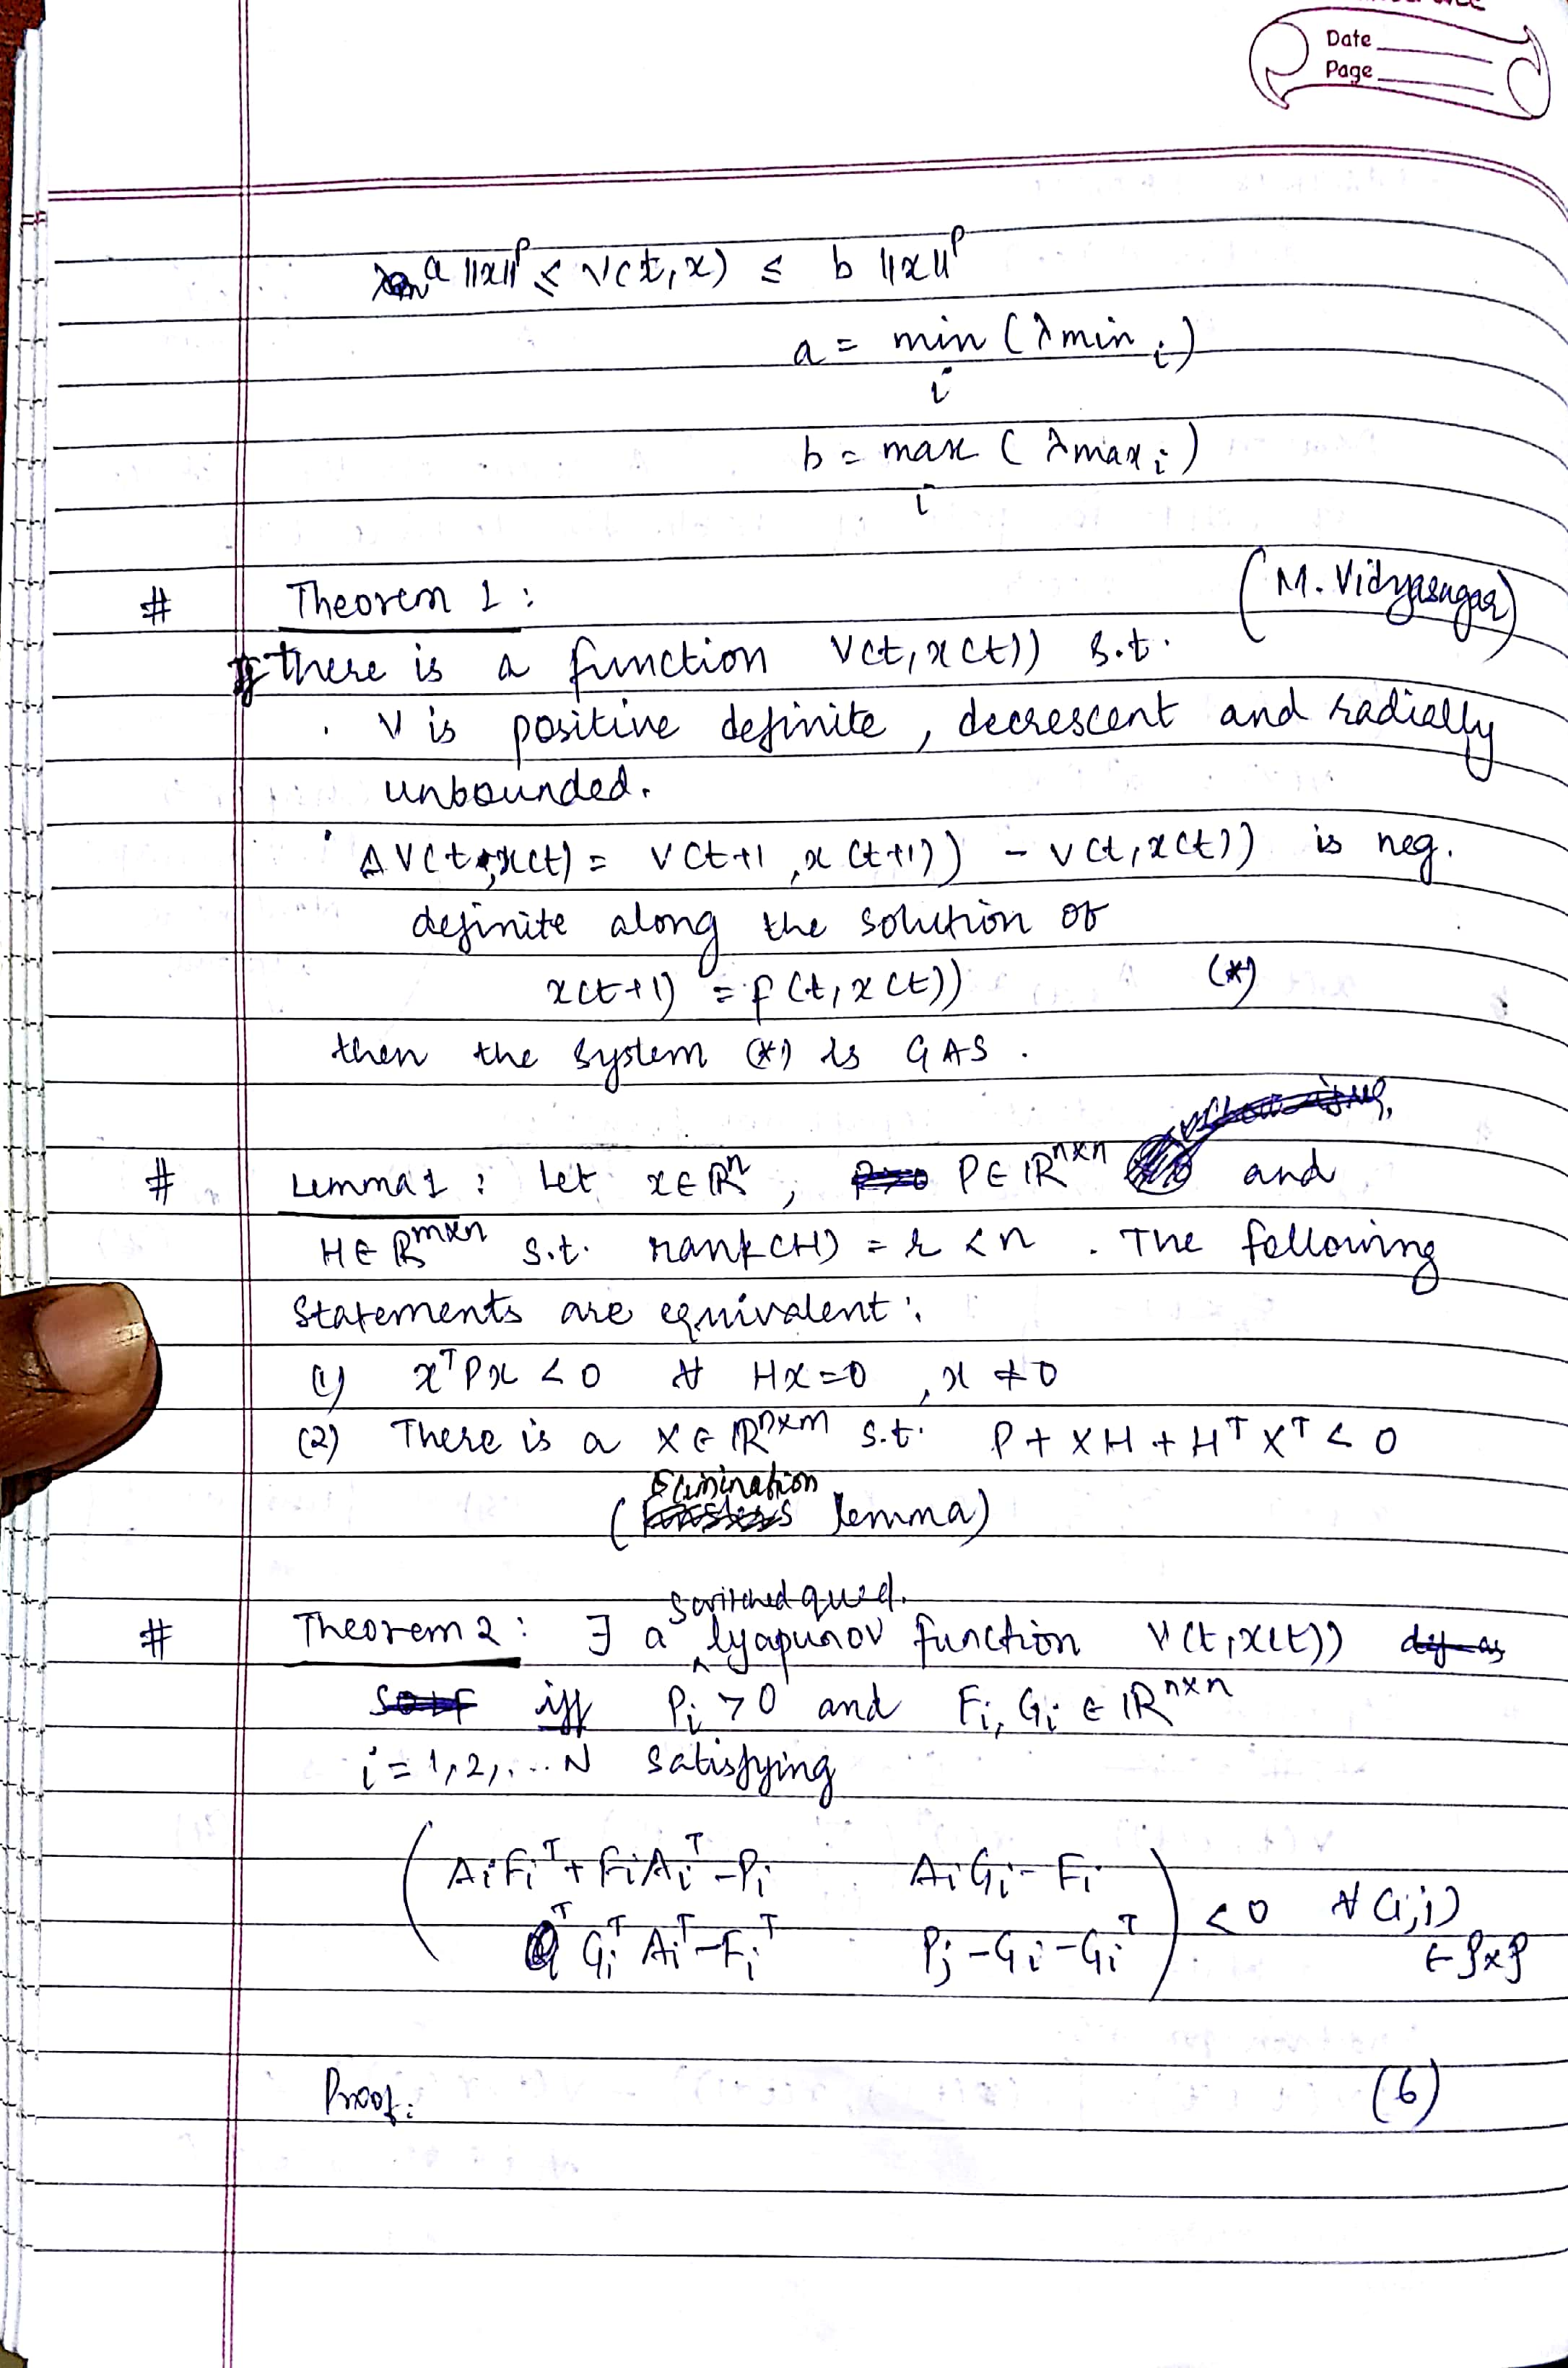 Date
Page
a ||x||^p ≤ V(t, x) ≤ b ||x||^p
a = min (λ min i)
i
b = max (λ max i)
i
# Theorem 1 : (M. Vidyasagar)
If there is a function V(t, x(t)) s.t.
. V is positive definite, decrescent and radially
unbounded.
. Δ V(t, x(t) = V(t+1, x(t+1)) - V(t, x(t)) is neg.
definite along the solution of
x(t+1) = f(t, x(t)) (*)
then the system (*) is GAS.
# Lemma 1 : Let x ∈ ℝ^n, P ∈ ℝ^{n×n} and
H ∈ ℝ^{m×n} s.t. rank(H) = r < n. The following
statements are equivalent :
(1) x^T P x < 0 ∀ Hx = 0, x ≠ 0
(2) There is a X ∈ ℝ^{n×m} s.t. P + XH + H^T X^T < 0
(Elimination lemma)
# Theorem 2 : ∃ a switched quad. lyapunov function V(t, x(t))
iff P_i > 0 and F_i, G_i ∈ ℝ^{n×n}
i = 1, 2, ... N satisfying
( A_i F_i^T + F_i A_i^T - P_i    A_i G_i - F_i
G_i^T A_i^T - F_i^T    P_j - G_i - G_i^T ) < 0 ∀ (i, j)
∈ ρ × ρ
Proof: (6)